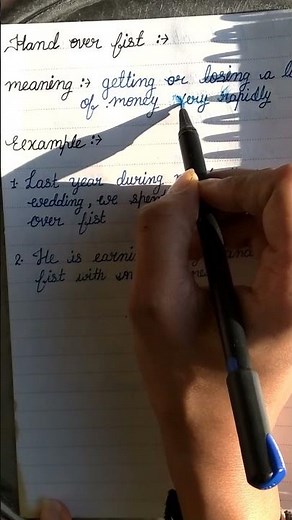 Hand over fist :→
meaning :→ getting or losing a
of money very rapidly
Example :→
1· Last year during
wedding, we
over fist
2· He is
fist with